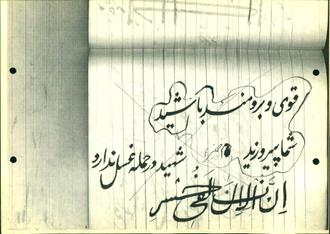 قوی و برومند باشید
شما پیروزید
شهید در حمله غسل ندارد
ان الانسان لفی خسر